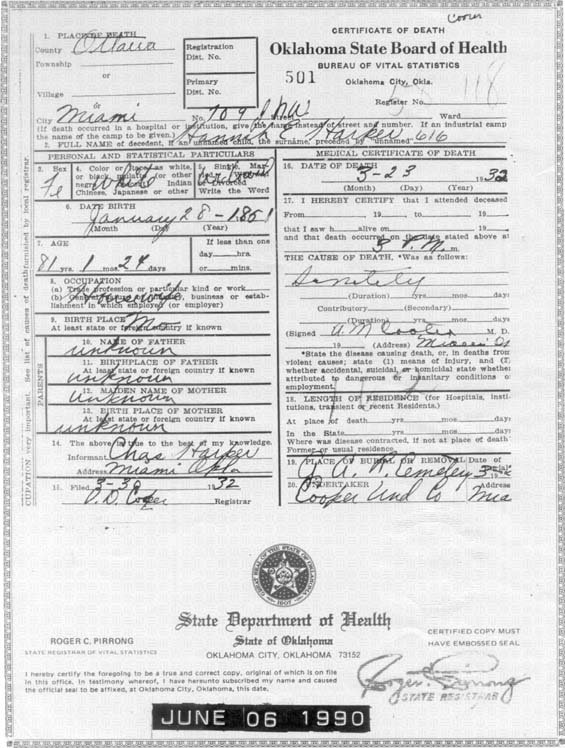 Cooper
CERTIFICATE OF DEATH
Oklahoma State Board of Health
BUREAU OF VITAL STATISTICS
501 Oklahoma City, Okla.
118
Register No.
1. PLACE OF DEATH
County Ottawa
Township
or
Village
or
City Miami
Registration
Dist. No.
Primary
Dist. No.
No. 709 Street Ward
(If death occurred in a hospital or institution, give the name instead of street and number. If an industrial camp
the name of the camp to be given.)
2. FULL NAME of decedent, if an unnamed child, the surname, preceded by "unnamed" 616
Harper
PERSONAL AND STATISTICAL PARTICULARS
3. Sex
Fe
4. Color or Race as white
or black, mulatto (or other
negro), Indian
Chinese, Japanese or other
White
5. Single, Mar-
or Divorced
Write the Word
6. DATE BIRTH
January 28 - 1851
(Month) (Day) (Year)
7. AGE
81 yrs. 1 mos. 24 days
If less than one
day hrs
or mins.
8. OCCUPATION
(a) Trade profession or particular kind or work
(b) General nature of industry, business or estab-
lishment in which employed (or employer)
Housewife
9. BIRTH PLACE
At least state or foreign country if known
PARENTS
10. NAME OF FATHER
unknown
11. BIRTHPLACE OF FATHER
At least state or foreign country if known
unknown
12. MAIDEN NAME OF MOTHER
unknown
13. BIRTH PLACE OF MOTHER
At least state or foreign country if known
unknown
14. The above is true to the best of my knowledge.
Informant Chas Harper
Address Miami Okla
15. Filed 3-30 1932
D. D. Cooper Registrar
MEDICAL CERTIFICATE OF DEATH
16. DATE OF DEATH
3-23 32
(Month) (Day) (Year)
17. I HEREBY CERTIFY that I attended deceased
From 19 to 19
that I saw h alive on 19
and that death occurred on the date stated above at
3 P.M. m.
THE CAUSE OF DEATH, *Was as follows:
(Duration) yrs mos days
Contributory (Secondary)
(Duration) yrs mos days
(Signed M. D.
19 (Address) Miami
*State the disease causing death, or, in deaths from
violent causes; state (1) means of injury, and (2
whether accidental, suicidal, or homicidal state whether
attributed to dangerous or insanitary conditions o
employment.
18. LENGTH OF RESIDENCE (for Hospitals, Insti-
tutions, transient or recent Residents.)
At place of death yrs mos days
In the State yrs mos days
Where was disease contracted, if not at place of death
Former or usual residence.
19. PLACE OF BURIAL OR REMOVAL Date of
G. A. R. Cemetery
20. UNDERTAKER Address
Cooper and Co Mia
State Department of Health
State of Oklahoma
OKLAHOMA CITY, OKLAHOMA 73152
ROGER C. PIRRONG
STATE REGISTRAR OF VITAL STATISTICS
CERTIFIED COPY MUST
HAVE EMBOSSED SEAL
I hereby certify the foregoing to be a true and correct copy, original of which is on file
in this office. In testimony whereof, I have hereunto subscribed my name and caused
the official seal to be affixed, at Oklahoma City, Oklahoma, this date.
Roger Pirrong
STATE REGISTRAR
JUNE 06 1990